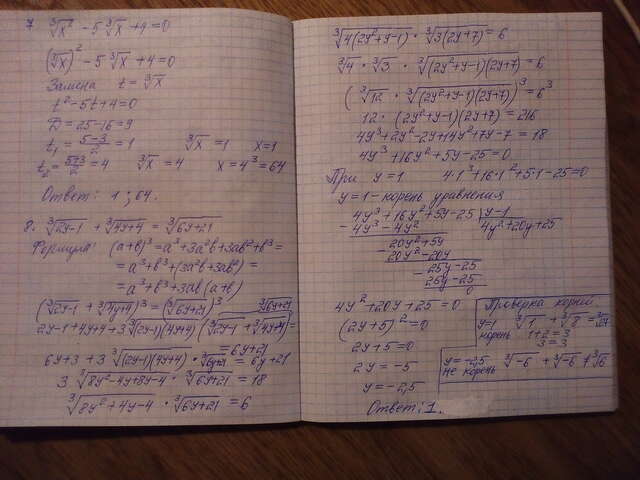 7 ∛x² - 5∛x + 4 = 0
(∛x)² - 5∛x + 4 = 0
Замена t = ∛x
t² - 5t + 4 = 0
D = 25 - 16 = 9
t₁ = (5-3)/2 = 1 ∛x = 1 x = 1
t₂ = (5+3)/2 = 4 ∛x = 4 x = 4³ = 64
Ответ: 1; 64.
8. ∛(2y-1) + ∛(4y+4) = ∛(6y+21)
Формула: (a+b)³ = a³ + 3a²b + 3ab² + b³ =
= a³ + b³ + (3a²b + 3ab²) =
= a³ + b³ + 3ab(a+b)
(∛(2y-1) + ∛(4y+4))³ = (∛(6y+21))³
∛(6y+21)
2y-1 + 4y+4 + 3∛((2y-1)(4y+4)) (∛(2y-1) + ∛(4y+4)) =
= 6y+21
6y+3 + 3∛((2y-1)(4y+4)) · ∛(6y+21) = 6y+21
3∛(8y²-4y+8y-4) · ∛(6y+21) = 18
∛(8y²+4y-4) · ∛(6y+21) = 6
∛(4(2y²+y-1)) · ∛(3(2y+7)) = 6
∛4 · ∛3 · ∛((2y²+y-1)(2y+7)) = 6
(∛12 · ∛((2y²+y-1)(2y+7)))³ = 6³
12 · (2y²+y-1)(2y+7) = 216
4y³+2y²-2y+14y²+7y-7 = 18
4y³+16y²+5y-25 = 0
При y = 1 4·1³+16·1²+5·1-25=0
y = 1 - корень уравнения
4y³+16y²+5y-25 | y-1
- 4y³-4y² 4y²+20y+25
20y²+5y
20y²-20y
- 25y-25
25y-25
0
4y²+20y+25 = 0
(2y+5)² = 0
2y+5 = 0
2y = -5
y = -2,5
Ответ: 1.
Проверка корней
y=1 ∛1 + ∛8 = ∛27
корень 1+2=3
3=3
y=-2,5 ∛-6 + ∛-6 ≠ ∛6
не корень